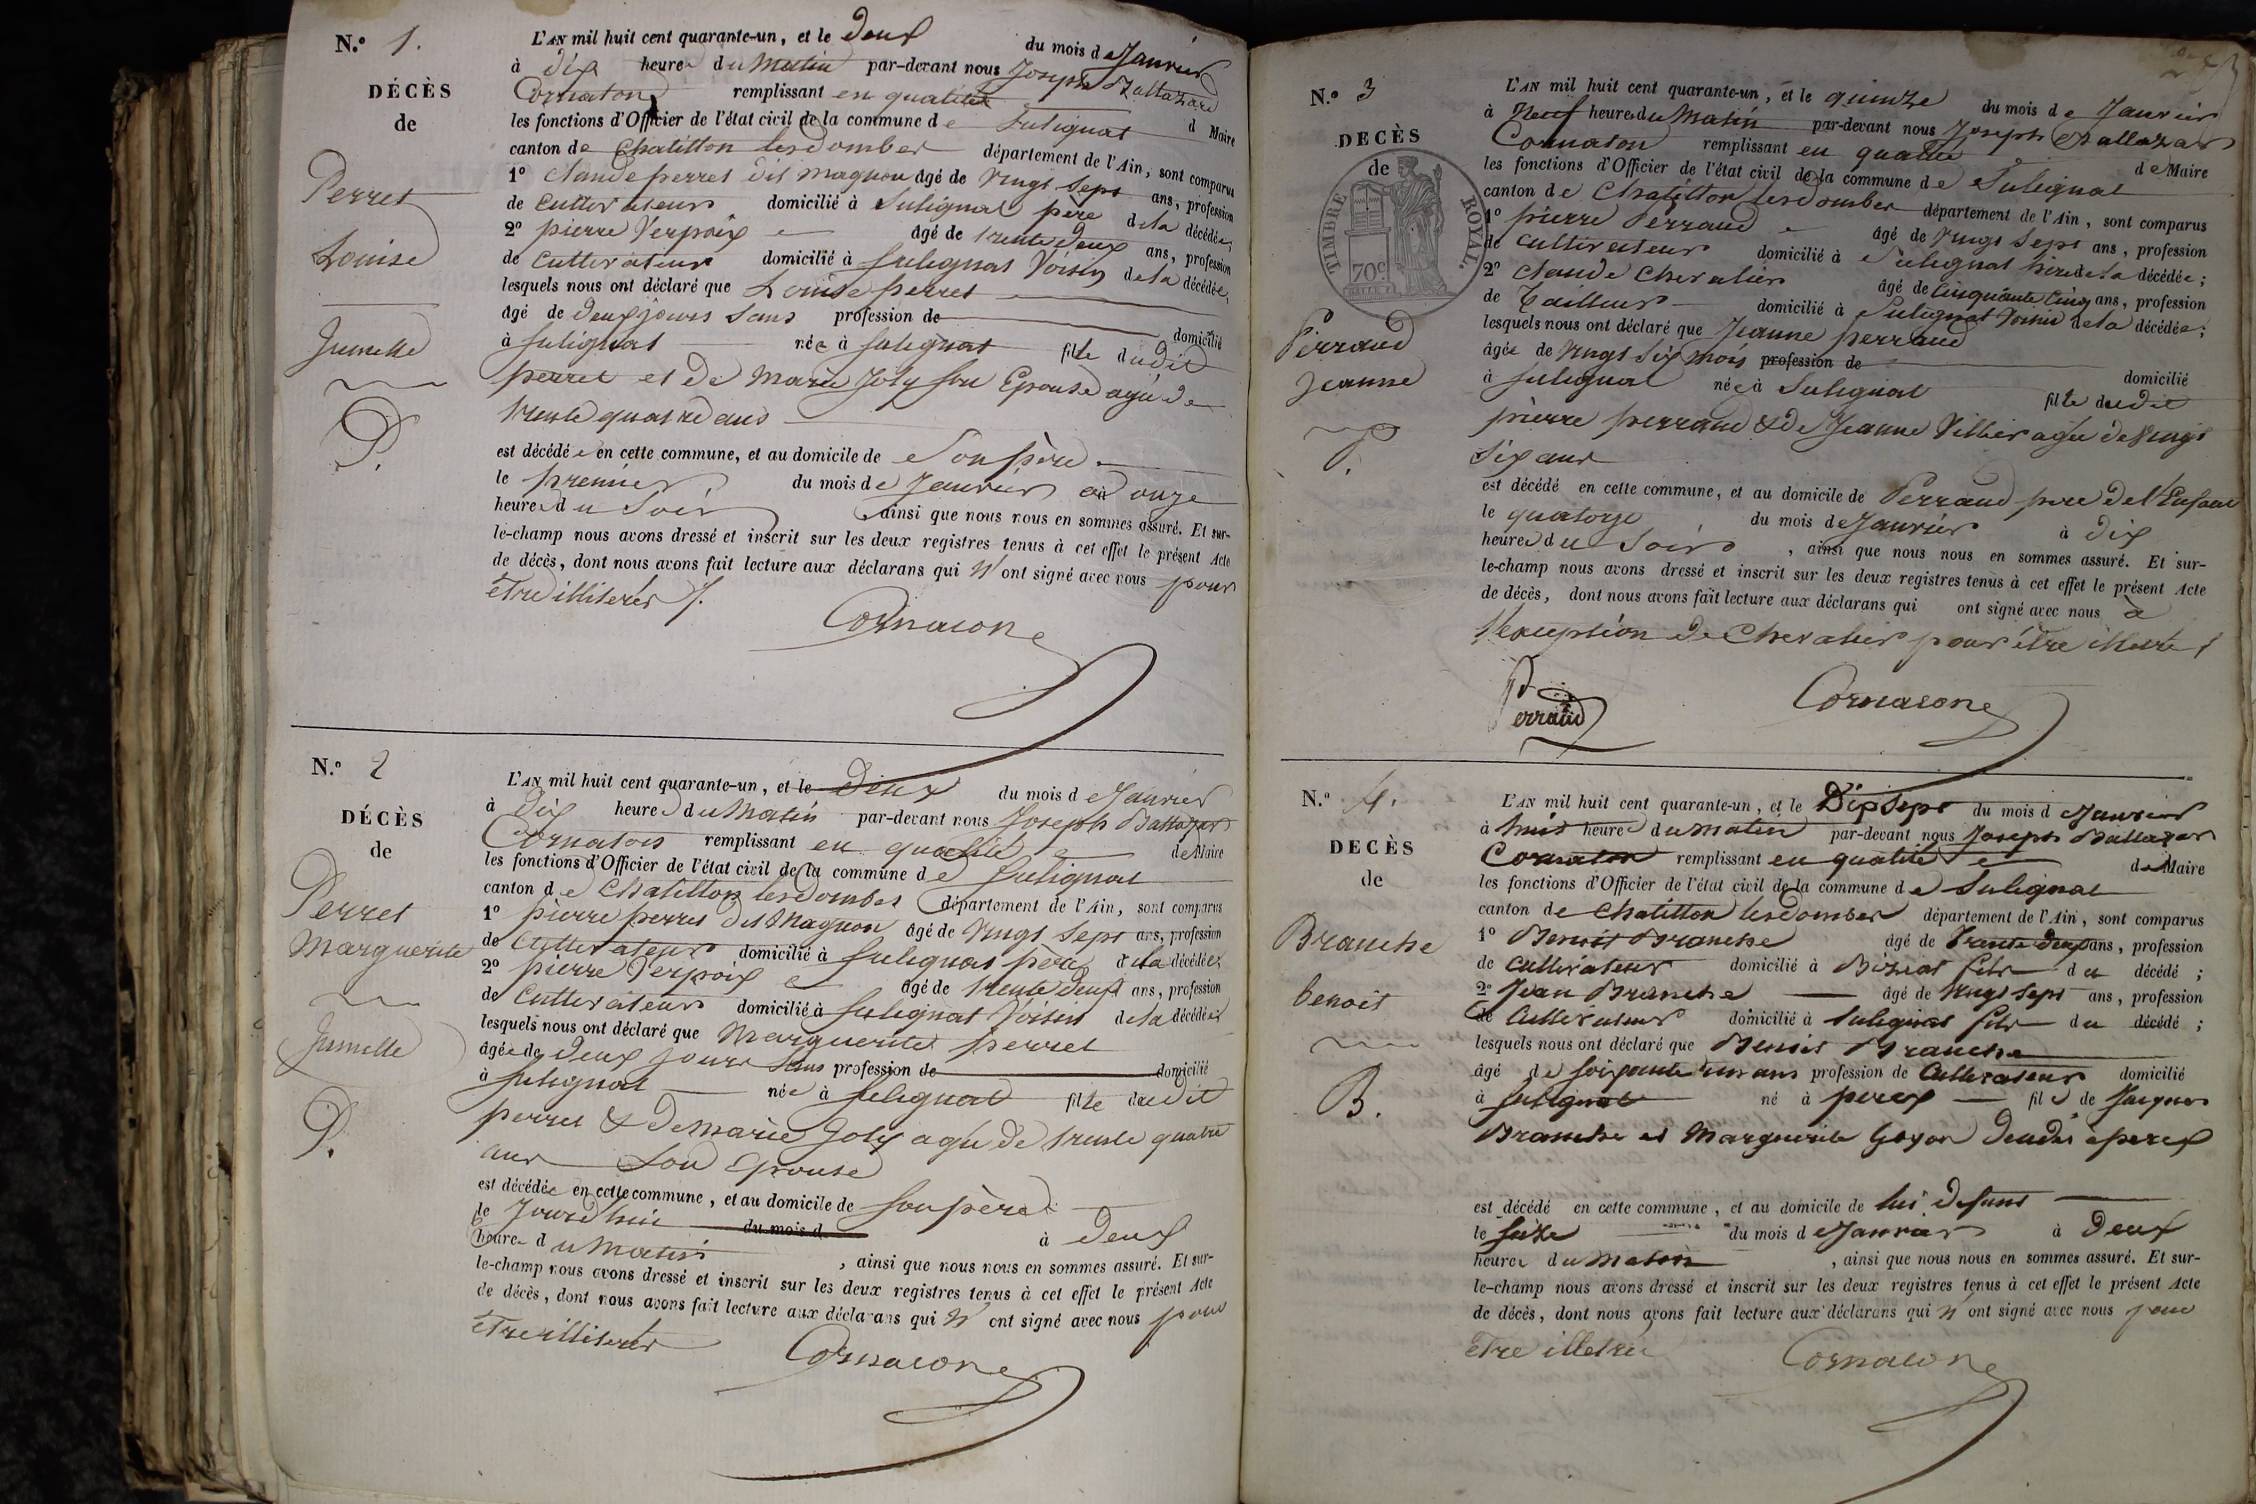 N.º 1.
DÉCÈS
de
Perret
Louise
Jumelle
P.
L'AN mil huit cent quarante-un, et le Deux du mois de Janvier
à Dix heures du Matin par-devant nous Joseph Baltazard
Cornaton remplissant en qualité d Maire
les fonctions d'Officier de l'état civil de la commune de Sulignat
canton de Chatillon les Dombes département de l'Ain, sont comparus
1º Claude perret dit magnon âgé de Vingt Sept ans, profession
de Cultivateur domicilié à Sulignat père de la décédée,
2º pierre Verpoix âgé de trente deux ans, profession
de Cultivateur domicilié à Sulignat Voisin de la décédée,
lesquels nous ont déclaré que Louise perret
âgé de deux jours Sans profession de domicilié
à Sulignat née à Sulignat fille dudit
perret et de Marie Joly son Epouse agée de
trente quatre ans
est décédée en cette commune, et au domicile de Son père
le premier du mois de Janvier à onze
heures du Soir ainsi que nous nous en sommes assuré. Et sur-
le-champ nous avons dressé et inscrit sur les deux registres tenus à cet effet le présent Acte
de décès, dont nous avons fait lecture aux déclarans qui n'ont signé avec nous pour
Etre illiterés
Cornaton
N.º 2
DÉCÈS
de
Perret
Marguerite
Jumelle
P.
L'AN mil huit cent quarante-un, et le Deux du mois de Janvier
à Dix heures du Matin par-devant nous Joseph Baltazar
Cornaton remplissant en qualité de Maire
les fonctions d'Officier de l'état civil de la commune de Sulignat
canton de Chatillon les Dombes département de l'Ain, sont comparus
1º pierre perret dit Magnon âgé de Vingt Sept ans, profession
de Cultivateur domicilié à Sulignat père de la décédée,
2º pierre Verpoix âgé de trente deux ans, profession
de Cultivateur domicilié à Sulignat Voisin de la décédée
lesquels nous ont déclaré que Marguerite perret
âgée de deux jours Sans profession de domicilié
à Sulignat née à Sulignat fille dudit
perret & De marie Joly agée de trente quatre
ans Son Epouse
est décédée en cette commune, et au domicile de Son père
le Jourdhui du mois d à deux
heures du Matin, ainsi que nous nous en sommes assuré. Et sur-
le-champ nous avons dressé et inscrit sur les deux registres tenus à cet effet le présent Acte
de décès, dont nous avons fait lecture aux déclarans qui n'ont signé avec nous pour
Etre illiterés
Cornaton
N.º 3
DECÈS
de
TIMBRE ROYAL.
70c
Perraud
Jeanne
P.
L'AN mil huit cent quarante-un, et le quinze du mois de Janvier
à Neuf heures du Matin par-devant nous Joseph Baltazar
Cornaton remplissant en qualité de Maire
les fonctions d'Officier de l'état civil de la commune de Sulignat
canton de Chatillon les Dombes département de l'Ain, sont comparus
1º pierre Perraud âgé de Vingt Sept ans, profession
de Cultivateur domicilié à Sulignat père de la décédée;
2º Claude Chevalier âgé de Cinquante Cinq ans, profession
de Tailleur domicilié à Sulignat Voisin de la décédée;
lesquels nous ont déclaré que Jeanne perraud
âgée de Vingt Six mois profession de domicilié
à Sulignat née à Sulignat fille dudit
pierre perraud & de Jeanne Villier agée de Vingt
Six ans
est décédé en cette commune, et au domicile de Perraud père de l'Enfant
le quatorze du mois de Janvier à dix
heures du Soir, ainsi que nous nous en sommes assuré. Et sur-
le-champ nous avons dressé et inscrit sur les deux registres tenus à cet effet le présent Acte
de décès, dont nous avons fait lecture aux déclarans qui ont signé avec nous à
l'exception de Chevalier pour être illetré
Perraud
Cornaton
N.º 4.
DECÈS
de
Branche
benoit
B.
L'AN mil huit cent quarante-un, et le Dix Sept du mois de Janvier
à huit heures du matin par-devant nous Joseph Baltazar
Cornaton remplissant en qualité de Maire
les fonctions d'Officier de l'état civil de la commune de Sulignat
canton de Chatillon les Dombes département de l'Ain, sont comparus
1º Benoit Branche âgé de trente deux ans, profession
de Cultivateur domicilié à Biziat fils du décédé;
2º Jean Branche âgé de Vingt Sept ans, profession
de Cultivateur domicilié à Sulignat fils du décédé;
lesquels nous ont déclaré que Benoit Branche
âgé de soixante un ans profession de Cultivateur domicilié
à Sulignat né à perex fils de Jacques
Branche et Marguerite Goyon à perex
est décédé en cette commune, et au domicile de lui defunt
le seize du mois de Janvier à deux
heures du Matin, ainsi que nous nous en sommes assuré. Et sur-
le-champ nous avons dressé et inscrit sur les deux registres tenus à cet effet le présent Acte
de décès, dont nous avons fait lecture aux déclarans qui n'ont signé avec nous pour
Etre illetrés
Cornaton